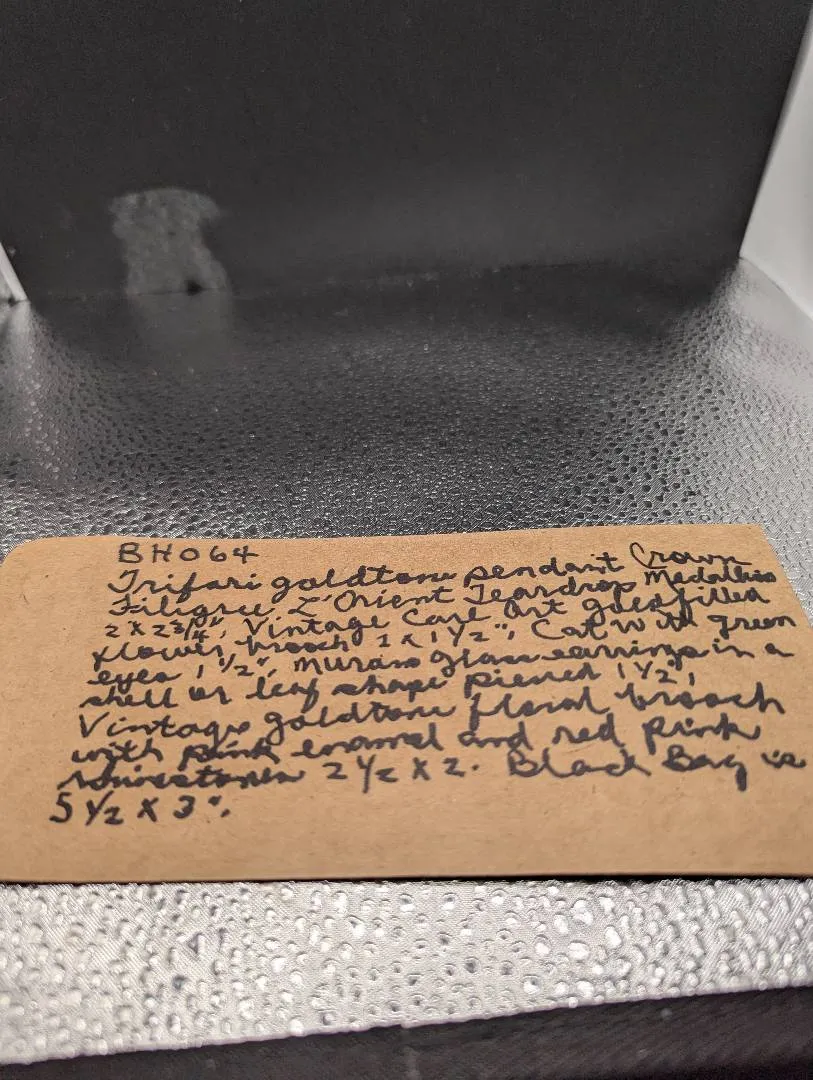 BH064
Trifari goldtone pendant Crown
Filigree L'Orient Teardrop Medallion
2 x 2 3/4", Vintage Carl Art gold filled
flower brooch 1 x 1 1/2", Cat with green
eyes 1 1/2", Murano glass earrings in a
shell or leaf shape pierced 1 1/2",
Vintage goldtone floral brooch
with pink enamel and red pink
rhinestones 2 1/2 x 2. Black Bag is
5 1/2 x 3".